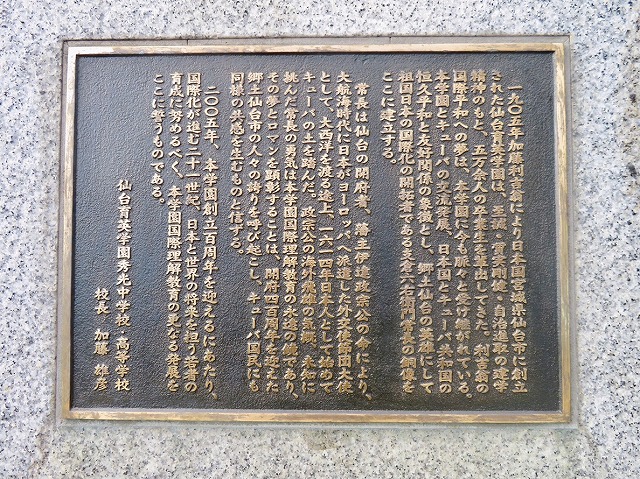 一九〇五年加藤利吉翁により日本国宮城県仙台市に創立
された仙台育英学園は、至誠・質実剛健・自治進取の建学
精神のもと、五万余人の卒業生を輩出してきた。利吉翁の
国際平和への夢は、本学園に今も脈々と受け継がれている。
本学園とキューバの交流発展、日本国とキューバ共和国の
恒久平和と友好関係の象徴とし、郷土仙台の英雄にして
祖国日本の国際化の開拓者である支倉六右衛門常長の銅像を
ここに建立する。
常長は仙台の開府者、藩主伊達政宗公の命により、
大航海時代に日本がヨーロッパへ派遣した外交使節団大使
として、大西洋を渡る途上、一六一四年日本人として初めて
キューバの土を踏んだ。政宗公の海外飛雄の気概、未知に
挑んだ常長の勇気は本学園国際理解教育の永遠の鑑であり、
その夢とロマンを顕彰することは、開府四百周年を迎えた
郷土仙台市の人々の誇りを呼び起こし、キューバ国民にも
同様の共感を生むものと信ずる。
二〇〇五年、本学園創立百周年を迎えるにあたり、
国際化が進む二十一世紀、日本と世界の将来を担う若者の
育成に努めるべく、本学園国際理解教育の更なる発展を
ここに誓うものである。
仙台育英学園秀光中学校・高等学校
校長 加藤 雄彦